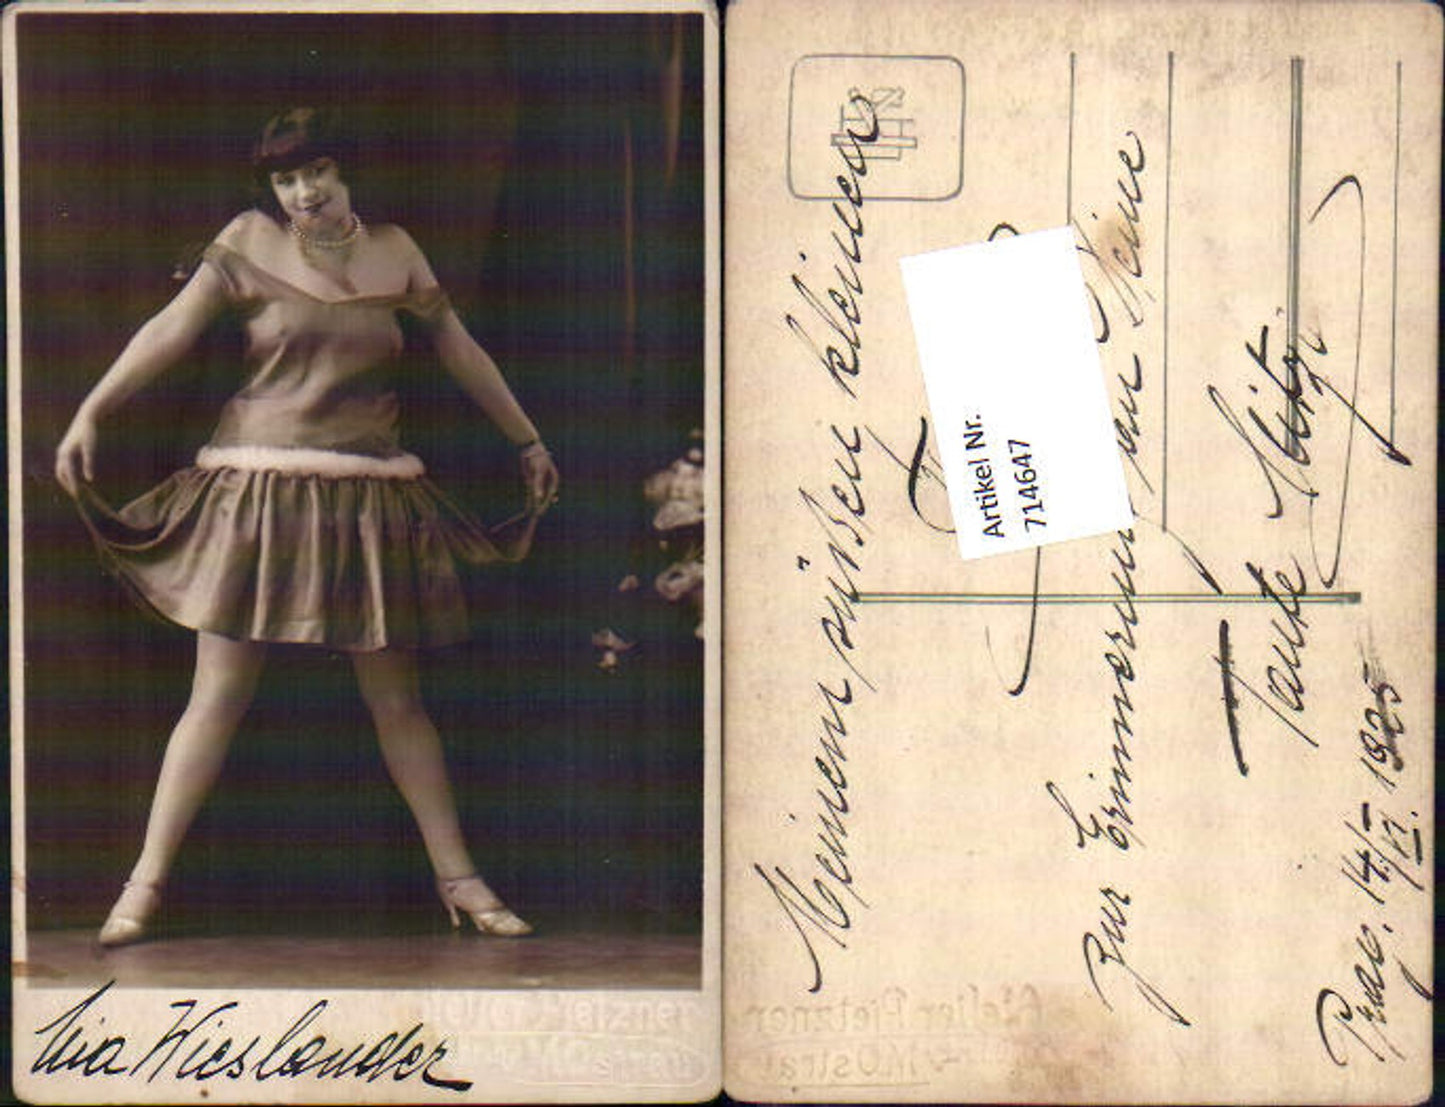 Mia Wieslander
Meinem süßen kleinen
Zur Erinnerung an Deine
Tante Mitzi
Prag. 14./VI. 1925
Artikel Nr.
714647
Atelier Pietzner
M. Ostrau